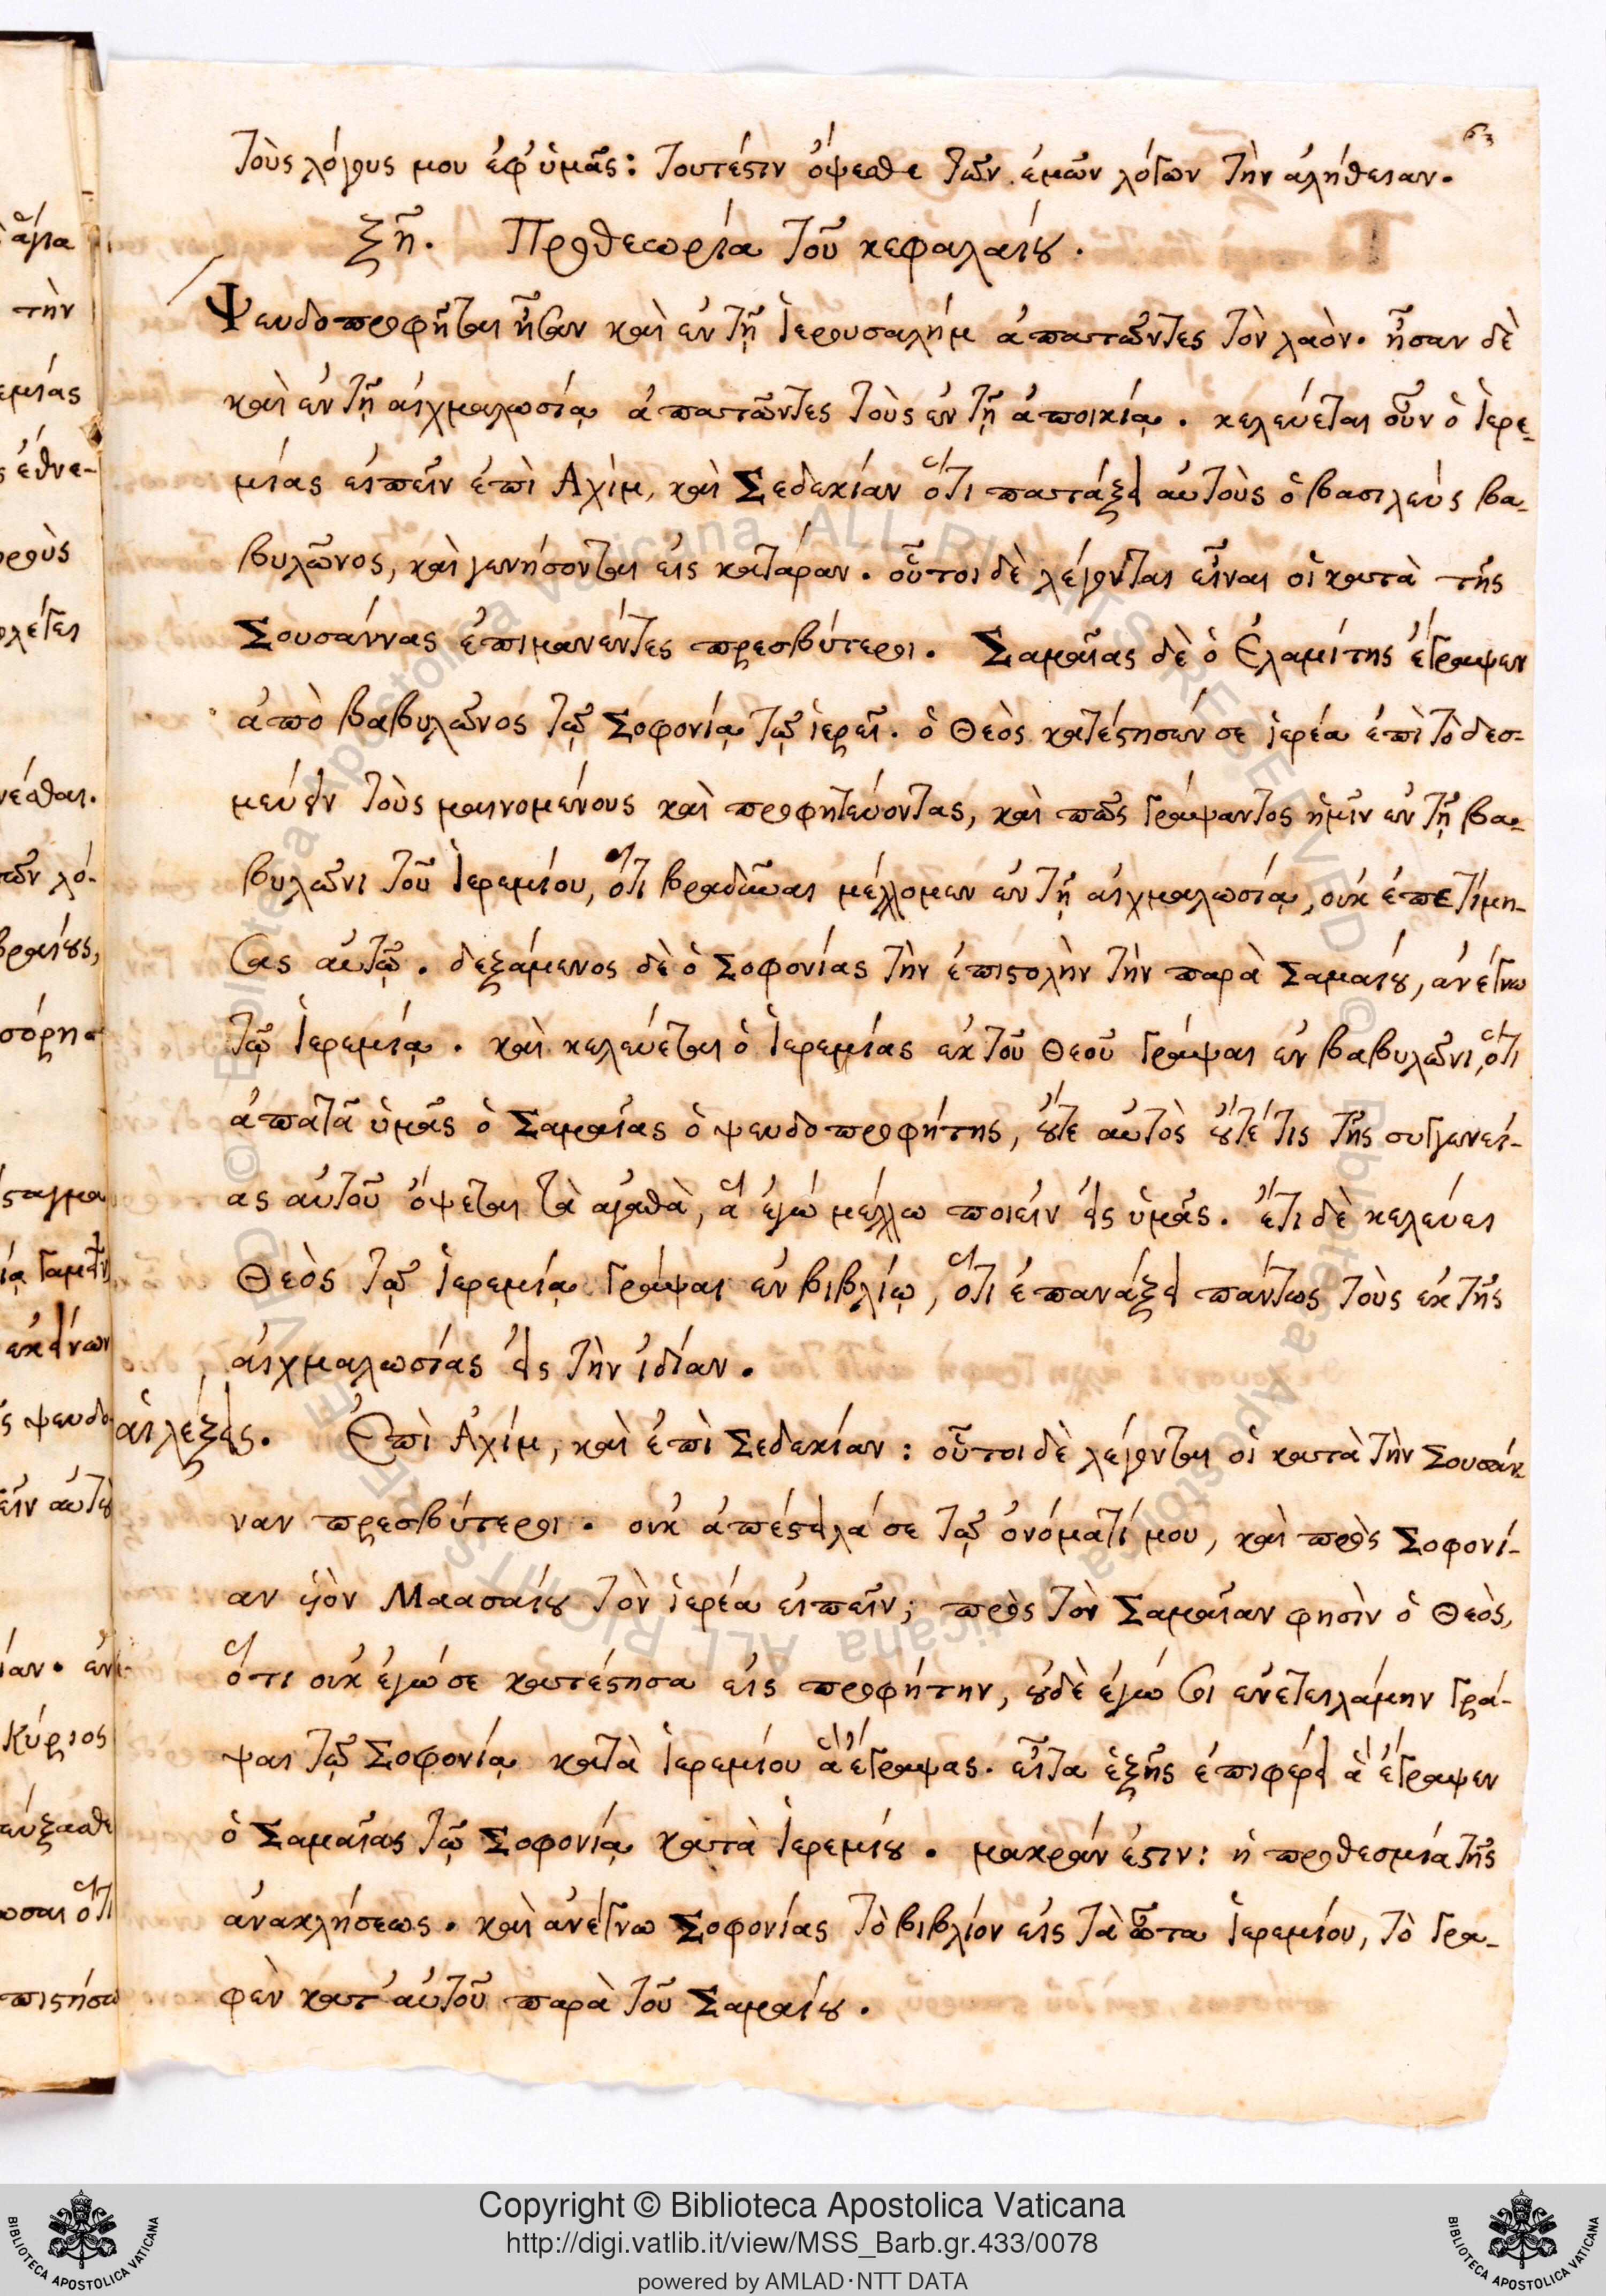 63
τοὺς λόγους μου ἐφ' ὑμᾶς: τουτέστιν ὄψεσθε τῶν ἐμῶν λόγων τὴν ἀλήθειαν.
ξη. Προθεωρία τοῦ κεφαλαίου.
Ψευδοπροφῆται ἦσαν καὶ ἐν τῇ Ἱερουσαλήμ ἀπατῶντες τὸν λαὸν. ἦσαν δὲ
καὶ ἐν τῇ αἰχμαλωσίᾳ ἀπατῶντες τοὺς ἐν τῇ ἀποικίᾳ. κελεύεται οὖν ὁ Ἱερε-
μίας εἰπεῖν ἐπὶ Αχὶμ, καὶ Σεδεκίαν ὅτι πατάξει αὐτοὺς ὁ βασιλεύς βα-
βυλῶνος, καὶ γενήσονται εἰς κατάραν. οὗτοι δὲ λέγονται εἶναι οἱ κατὰ τῆς
Σουσάννας ἐπιμανέντες πρεσβύτεροι. Σαμαΐας δὲ ὁ Ἐλαμίτης ἔγραψεν
ἀπὸ βαβυλῶνος τῷ Σοφονίᾳ τῷ ἱερεῖ. ὁ Θεὸς κατέστησέν σε ἱερέα ἐπὶ τὸ δεσ-
μεύειν τοὺς μαινομένους καὶ προφητεύοντας, καὶ πῶς γράψαντος ἡμῖν ἐν τῇ βα-
βυλῶνι τοῦ Ἱερεμίου, ὅτι βραδῦναι μέλλομεν ἐν τῇ αἰχμαλωσίᾳ, οὐκ ἐπετίμη-
σας αὐτῷ. δεξάμενος δὲ ὁ Σοφονίας τὴν ἐπιστολὴν τὴν παρὰ Σαμαίου, ἀνέγνω
τῷ Ἱερεμίᾳ. καὶ κελεύεται ὁ Ἱερεμίας ἐκ τοῦ Θεοῦ γράψαι ἐν βαβυλῶνι, ὅτι
ἀπατᾶ ὑμᾶς ὁ Σαμαΐας ὁ ψευδοπροφήτης, οὔτε αὐτὸς οὔτέ τις τῆς συγγενεί-
ας αὐτοῦ ὄψεται τὰ ἀγαθὰ, ἅ ἐγώ μέλλω ποιεῖν εἰς ὑμᾶς. ἔτι δὲ κελεύει
Θεὸς τῷ Ἱερεμίᾳ γράψαι ἐν βιβλίῳ, ὅτι ἐπανάξει πάντως τοὺς ἐκ τῆς
αἰχμαλωσίας εἰς τὴν ἰδίαν.
αἱ λέξεις. Ἐπὶ Ἀχίμ, καὶ ἐπὶ Σεδεκίαν: οὗτοι δὲ λέγονται οἱ κατὰ τὴν Σουσάν
ναν πρεσβύτεροι. οὐκ ἀπέστειλά σε τῷ ὀνόματί μου, καὶ πρὸς Σοφονί-
αν υἱὸν Μαασαίου τὸν ἱερέα εἰπεῖν; πρὸς τὸν Σαμαῖαν φησὶν ὁ Θεὸς,
ὅτι οὐκ ἐγώ σε κατέστησα εἰς προφήτην, οὐδὲ ἐγώ σοι ἐνετειλάμην γρά-
ψαι τῷ Σοφονίᾳ κατὰ Ἱερεμίου ἃ ἔγραψας. εἶτα ἑξῆς ἐπιφέρει ἃ ἔγραψεν
ὁ Σαμαΐας τῷ Σοφονίᾳ κατὰ Ἱερεμίου. μακράν ἐστιν: ἡ προθεσμία τῆς
ἀνακλήσεως. καὶ ἀνέγνω Σοφονίας τὸ βιβλίον εἰς τὰ ὦτα Ἱερεμίου, τὸ γρα-
φὲν κατ' αὐτοῦ παρὰ τοῦ Σαμαίου.
Copyright © Biblioteca Apostolica Vaticana
http://digi.vatlib.it/view/MSS_Barb.gr.433/0078
powered by AMLAD·NTT DATA